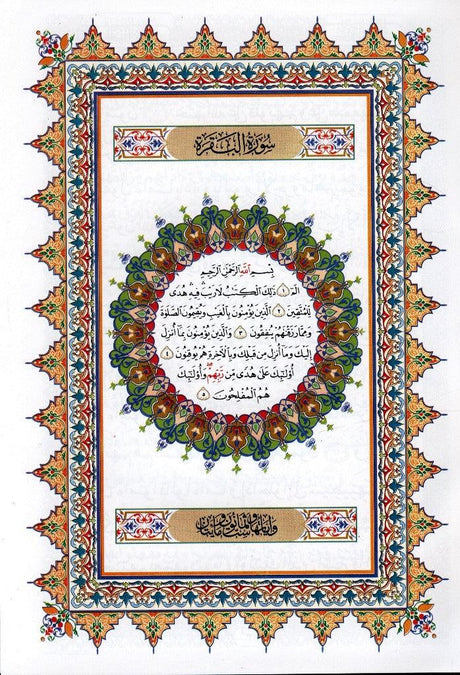 سُورَةُ البَقَرَةِ
بِسْمِ اللَّهِ الرَّحْمَٰنِ الرَّحِيمِ
الٓمٓ ۝١ ذَٰلِكَ الْكِتَٰبُ لَا رَيْبَ فِيهِ هُدًى
لِّلْمُتَّقِينَ ۝٢ الَّذِينَ يُؤْمِنُونَ بِالْغَيْبِ وَيُقِيمُونَ الصَّلَوٰةَ
وَمِمَّا رَزَقْنَٰهُمْ يُنفِقُونَ ۝٣ وَالَّذِينَ يُؤْمِنُونَ بِمَآ أُنزِلَ
إِلَيْكَ وَمَآ أُنزِلَ مِن قَبْلِكَ وَبِالْآخِرَةِ هُمْ يُوقِنُونَ ۝٤
أُو۟لَٰٓئِكَ عَلَىٰ هُدًى مِّن رَّبِّهِمْ وَأُو۟لَٰٓئِكَ
هُمُ الْمُفْلِحُونَ ۝٥
وآياتها مائتان وست وثمانون